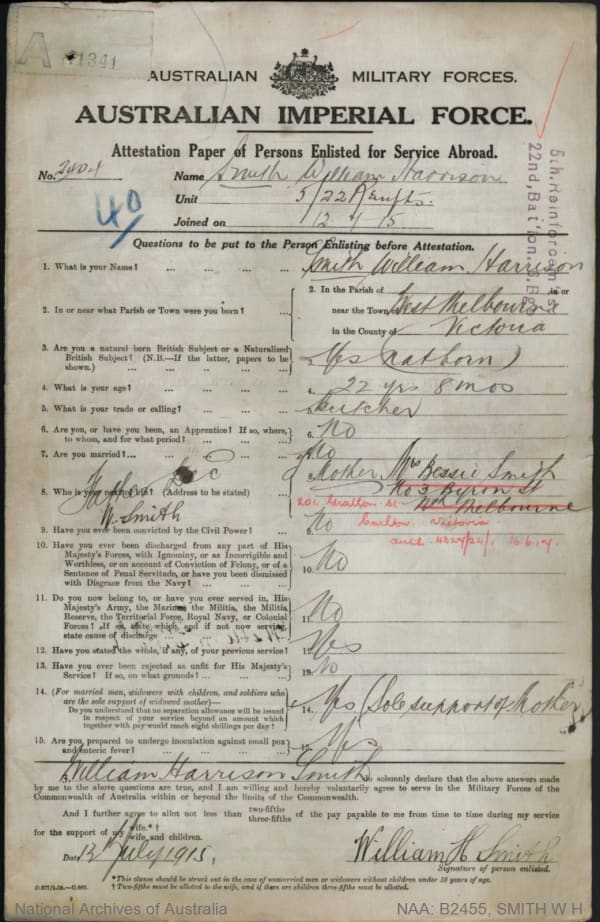 A 1341
AUSTRALIAN MILITARY FORCES.
AUSTRALIAN IMPERIAL FORCE.
Attestation Paper of Persons Enlisted for Service Abroad.
No. 2404 Name Smith William Harrison
Unit 5/22 Reinfts.
40
Joined on 12-7-15
5th. Reinforcements
22nd. Bat'ion.
Questions to be put to the Person Enlisting before Attestation.
1. What is your Name? ... ... ... ... Smith William Harrison
2. In or near what Parish or Town were you born? ... 2. In the Parish of in or
near the Town of West Melbourne
in the County of Victoria
3. Are you a natural born British Subject or a Naturalized
British Subject? (N.B.—If the latter, papers to be
shown.) ... ... ... ... ... 3. Yes (nat born)
4. What is your age? ... ... ... ... 4. 22 yrs 8 mos
5. What is your trade or calling? ... ... ... 5. Butcher
6. Are you, or have you been, an Apprentice? If so, where,
to whom, and for what period? ... ... ... 6. No
7. Are you married? ... ... ... ... 7. No
Father Dec
W. Smith
8. Who is your next of kin? (Address to be stated) 8. Mother Mrs Bessie Smith
No 3 Byron St
Nth Melbourne
201. Grattan St
Carlton. Victoria
16.6.
9. Have you ever been convicted by the Civil Power? ... 9. No
10. Have you ever been discharged from any part of His
Majesty's Forces, with Ignominy, or as Incorrigible and
Worthless, or on account of Conviction of Felony, or of a
Sentence of Penal Servitude, or have you been dismissed
with Disgrace from the Navy? ... ... ... 10. No
11. Do you now belong to, or have you ever served in, His
Majesty's Army, the Marines, the Militia, the Militia
Reserve, the Territorial Force, Royal Navy, or Colonial
Forces? If so, state which, and if not now serving,
state cause of discharge ... ... 11. No
12. Have you stated the whole, if any, of your previous service? 12. Yes
13. Have you ever been rejected as unfit for His Majesty's
Service? If so, on what grounds? ... ... 13. No
14. (For married men, widowers with children, and soldiers who
are the sole support of widowed mother)—
Do you understand that no separation allowance will be issued
in respect of your service beyond an amount which
together with pay would reach eight shillings per day? 14. Yes (Sole support of Mother)
15. Are you prepared to undergo inoculation against small pox
and enteric fever? ... ... ... 15. Yes
I, William Harrison Smith do solemnly declare that the above answers made
by me to the above questions are true, and I am willing and hereby voluntarily agree to serve in the Military Forces of the
Commonwealth of Australia within or beyond the limits of the Commonwealth.
And I further agree to allot not less than two-fifths three-fifths of the pay payable to me from time to time during my service
for the support of my wife.*† wife and children.
Date 12th July 1915. William H Smith
Signature of person enlisted.
*This clause should be struck out in the case of unmarried men or widowers without children under 18 years of age.
†Two-fifths must be allotted to the wife, and if there are children three-fifths must be allotted.
National Archives of Australia NAA: B2455, SMITH W H